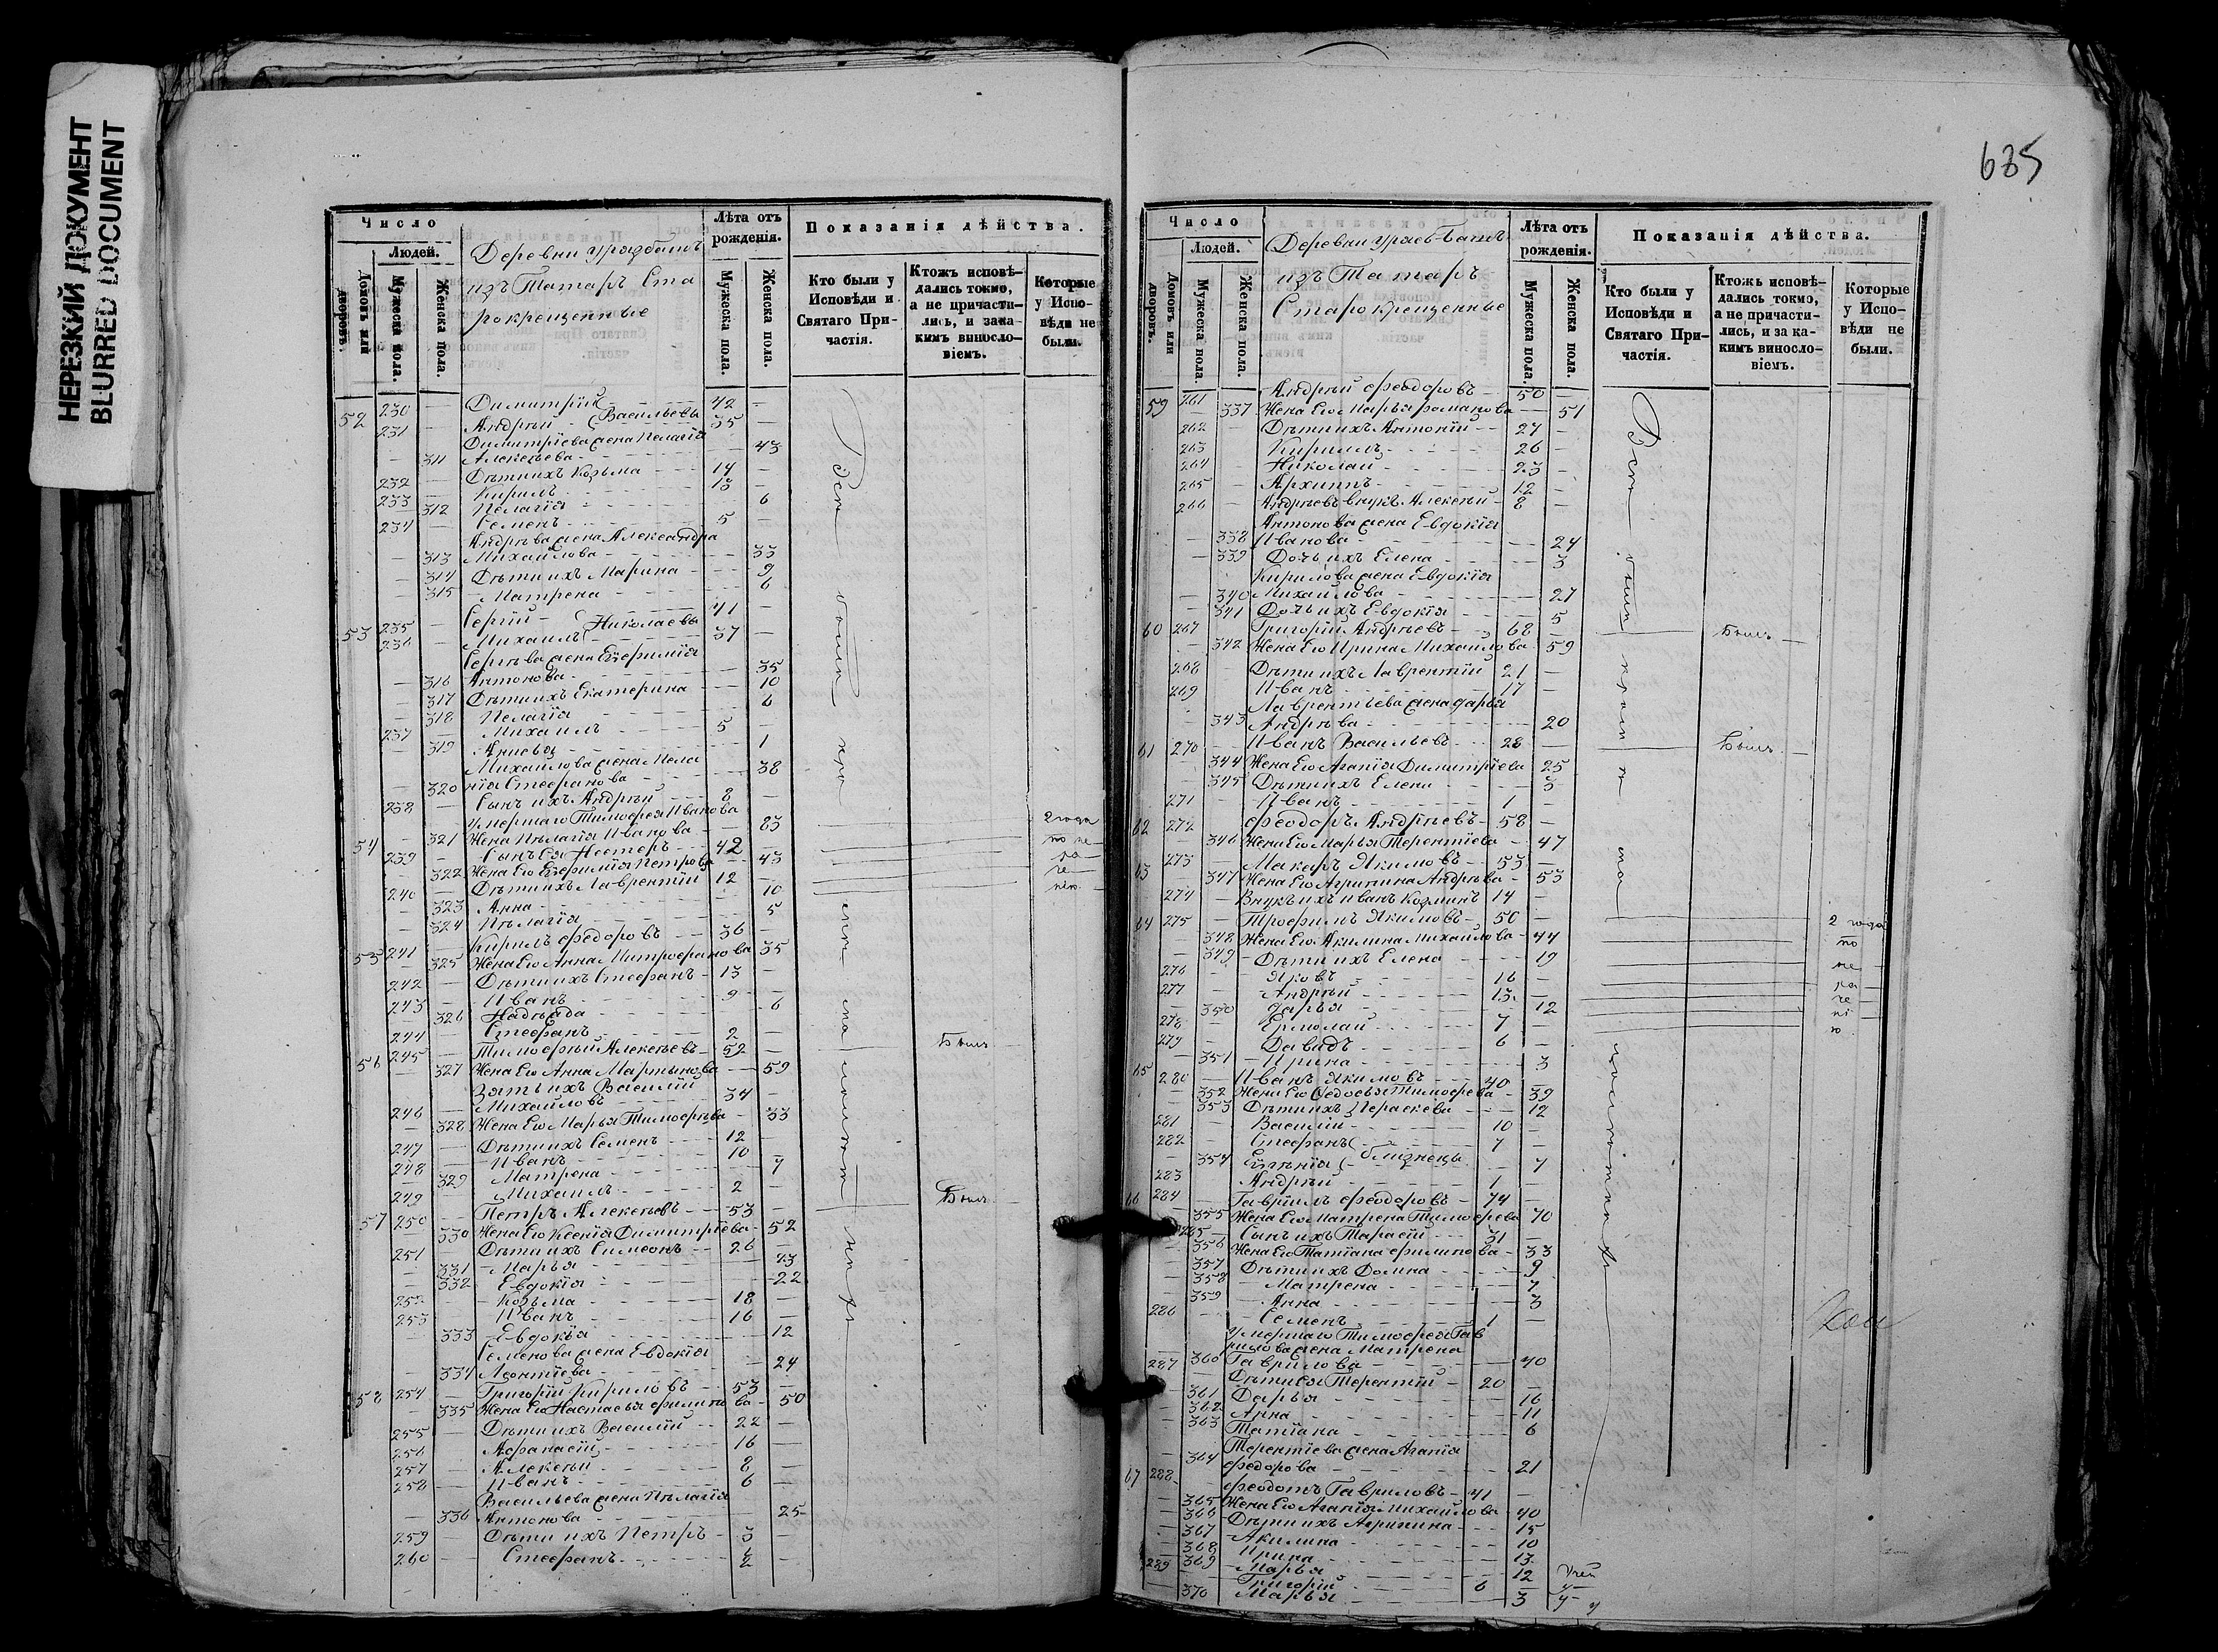 НЕРЕЗКИЙ ДОКУМЕНТ
BLURRED DOCUMENT
Число
Людей.
Домовъ или дворовъ.
Мужеска пола.
Женска пола.
Деревни
изъ Татаръ Ста
рокрещенные
Лѣта отъ рожденія.
Мужеска пола.
Женска пола.
Показанія дѣйства.
Кто были у Исповѣди и Святаго Причастія.
Ктожъ исповѣдались токмо, а не причастились, и за какимъ винословіемъ.
Которые у Исповѣди не были.
52 230 — Димитрій 42 —
231 — Андрей Васильевы 35 —
Димитріева жена Пелагія
— 311 Алексѣева 43
232 — Дѣти ихъ Козьма 14 —
233 — Кирилъ 13 —
312 Пелагія 6
234 — Семенъ 5 —
Андрѣева жена Александра
— 313 Михайлова 33
— 314 Дѣти ихъ Марина 9
— 315 Матрена 6
53 235 — Сергій Николаевы 41 —
236 — Михаилъ 37 —
Сергѣева жена Евфимія
— 316 Антонова 35
— 317 Дѣти ихъ Екатерина 10
— 318 Пелагія 6
237 — Михаилъ 5
— 319 1
Михайлова жена Мела
— 320 нія Стефанова 38
238 — Сынъ ихъ Андрей 8 —
Умершаго Тимофея Иванова
54 — 321 Жена Пелагія Иванова 83
239 — Сынъ Ея Несторъ 42 —
— 322 Жена Его Евфимія Петрова 43
240 — Дѣти ихъ Лаврентій 12 —
— 323 Анна 10
— 324 Пелагія 5
2 года
по не
ра
че
нію
55 241 — Кирилъ Федоровъ 36 —
— 325 Жена Его Анна Митрофанова 35
242 — Дѣти ихъ Стефанъ 13 —
243 — Иванъ 9 —
326 Надежда 6
244 — Стефанъ 2 —
56 245 — Тимофей Алексѣевъ 59 —
— 327 Жена Его Анна Мартынова 59
Зять ихъ Василій
246 — Михайловъ 34 —
— 328 Жена Его Марья Тимофѣева 33
247 — Дѣти ихъ Семенъ 12 —
248 — Иванъ 10
329 Матрена 7
249 Михаилъ 2 —
57 250 — Петръ Алексѣевъ 53 —
— 330 Жена Его Ксенія Димитріева 52
251 — Дѣти ихъ Симеонъ 26 —
— 331 Марья 23
— 332 Евдокія 22
252 — Козьма 18 —
253 — Иванъ 16 —
— 333 Евдокія 12
Семенова жена Евдокія
— 334 Леонтіева 24
58 254 — Григорій Кириловъ 53 —
— 335 Жена Его Настасья Филипова 50
255 — Дѣти ихъ Василій 22 —
256 — Афанасій 16 —
257 — Алексѣй 8 —
258 — Иванъ 6 —
Васильева жена Пелагія
— 336 Антонова 25
259 Дѣти ихъ Петръ 3 —
260 — Стефанъ 2 —
635
Число
Людей.
Домовъ или дворовъ.
Мужеска пола.
Женска пола.
Деревни
изъ Татаръ
Старокрещенные
Лѣта отъ рожденія.
Мужеска пола.
Женска пола.
Показанія дѣйства.
Кто были у Исповѣди и Святаго Причастія.
Ктожъ исповѣдались токмо, а не причастились, и за какимъ винословіемъ.
Которые у Исповѣди не были.
59 261 — Андрей Феодоровъ 50 —
— 337 Жена Его Марья Романова 51
262 — Дѣти ихъ Антоній 27 —
263 — Кириллъ 26 —
264 — Николай 23 —
265 — Архиппъ 12 —
266 — Андрѣевъ внукъ Алексѣй 8 —
Антонова жена Евдокія
— 338 Иванова 24
— 339 Дочь ихъ Елена 3
Кирилова жена Евдокія
— 340 Михайлова 27
— 341 Дочь ихъ Евдокія 5
60 267 — Григорій Андрѣевъ 68 —
— 342 Жена Его Ирина Михайлова 59
268 — Дѣти ихъ Лаврентій 21 —
269 — Иванъ 17 —
Лаврентьева жена Дарья
— 343 Андрѣева 20
61 270 — Иванъ Васильевъ 28 —
344 Жена Его Агапія Димитріева 25
345 Дѣти ихъ Елена 3
271 — Иванъ 1 —
62 272 Феодоръ Андрѣевъ 58 —
346 Жена Его Марья Терентіева 47
63 273 Макаръ Якимовъ 53 —
347 Жена Его Агрипина Андрѣева 53
274 — Внукъ ихъ Иванъ Козминъ 14 —
64 275 — Трофимъ Якимовъ 50 —
— 348 Жена Его Акилина Михайлова 44
— 349 Дѣти ихъ Елена 19
276 — Яковъ 16 —
277 — Андрей 13 —
350 Дарья 12
278 — Ермолай 7 —
279 — Давидъ 6 —
— 351 Ирина 3
2 года
по
не
ра
че
ні
ю
65 280 — Иванъ Якимовъ 40 —
— 352 Жена Его Федосья Тимофеева 39
— 353 Дѣти ихъ Параскева 12
281 — Василій 10 —
282 — Стефанъ близнецы 7 —
— 354 Евгенія 7
283 Андрей 1 —
66 284 — Гавріилъ Феодоровъ 74 —
— 355 Жена Его Матрена Тимофеева 70
285 — Сынъ ихъ Тарасій 31 —
— 356 Жена Его Татіана Филипова 33
— 357 Дѣти ихъ Домна 9
— 358 Матрена 7
— 359 Анна 3
286 — Семенъ 1 —
Умершаго Тимофея Гав
рилова жена Матрена
360 Гаврилова 40
287 Дѣти ея Терентій 20
— 361 Дарья 16
362 Анна 11
— 363 Татіана 6
Терентіева жена Агапія
— 364 Федорова 21
67 288 Феодотъ Гавриловъ 41 —
— 365 Жена Его Агапія Михайлова 40
— 366 Дѣти ихъ Агрипина 15
— 367 Акилина 10
— 368 Ирина 13
369 Марья 12
289 Григорій 6 —
— 370 Марья 3